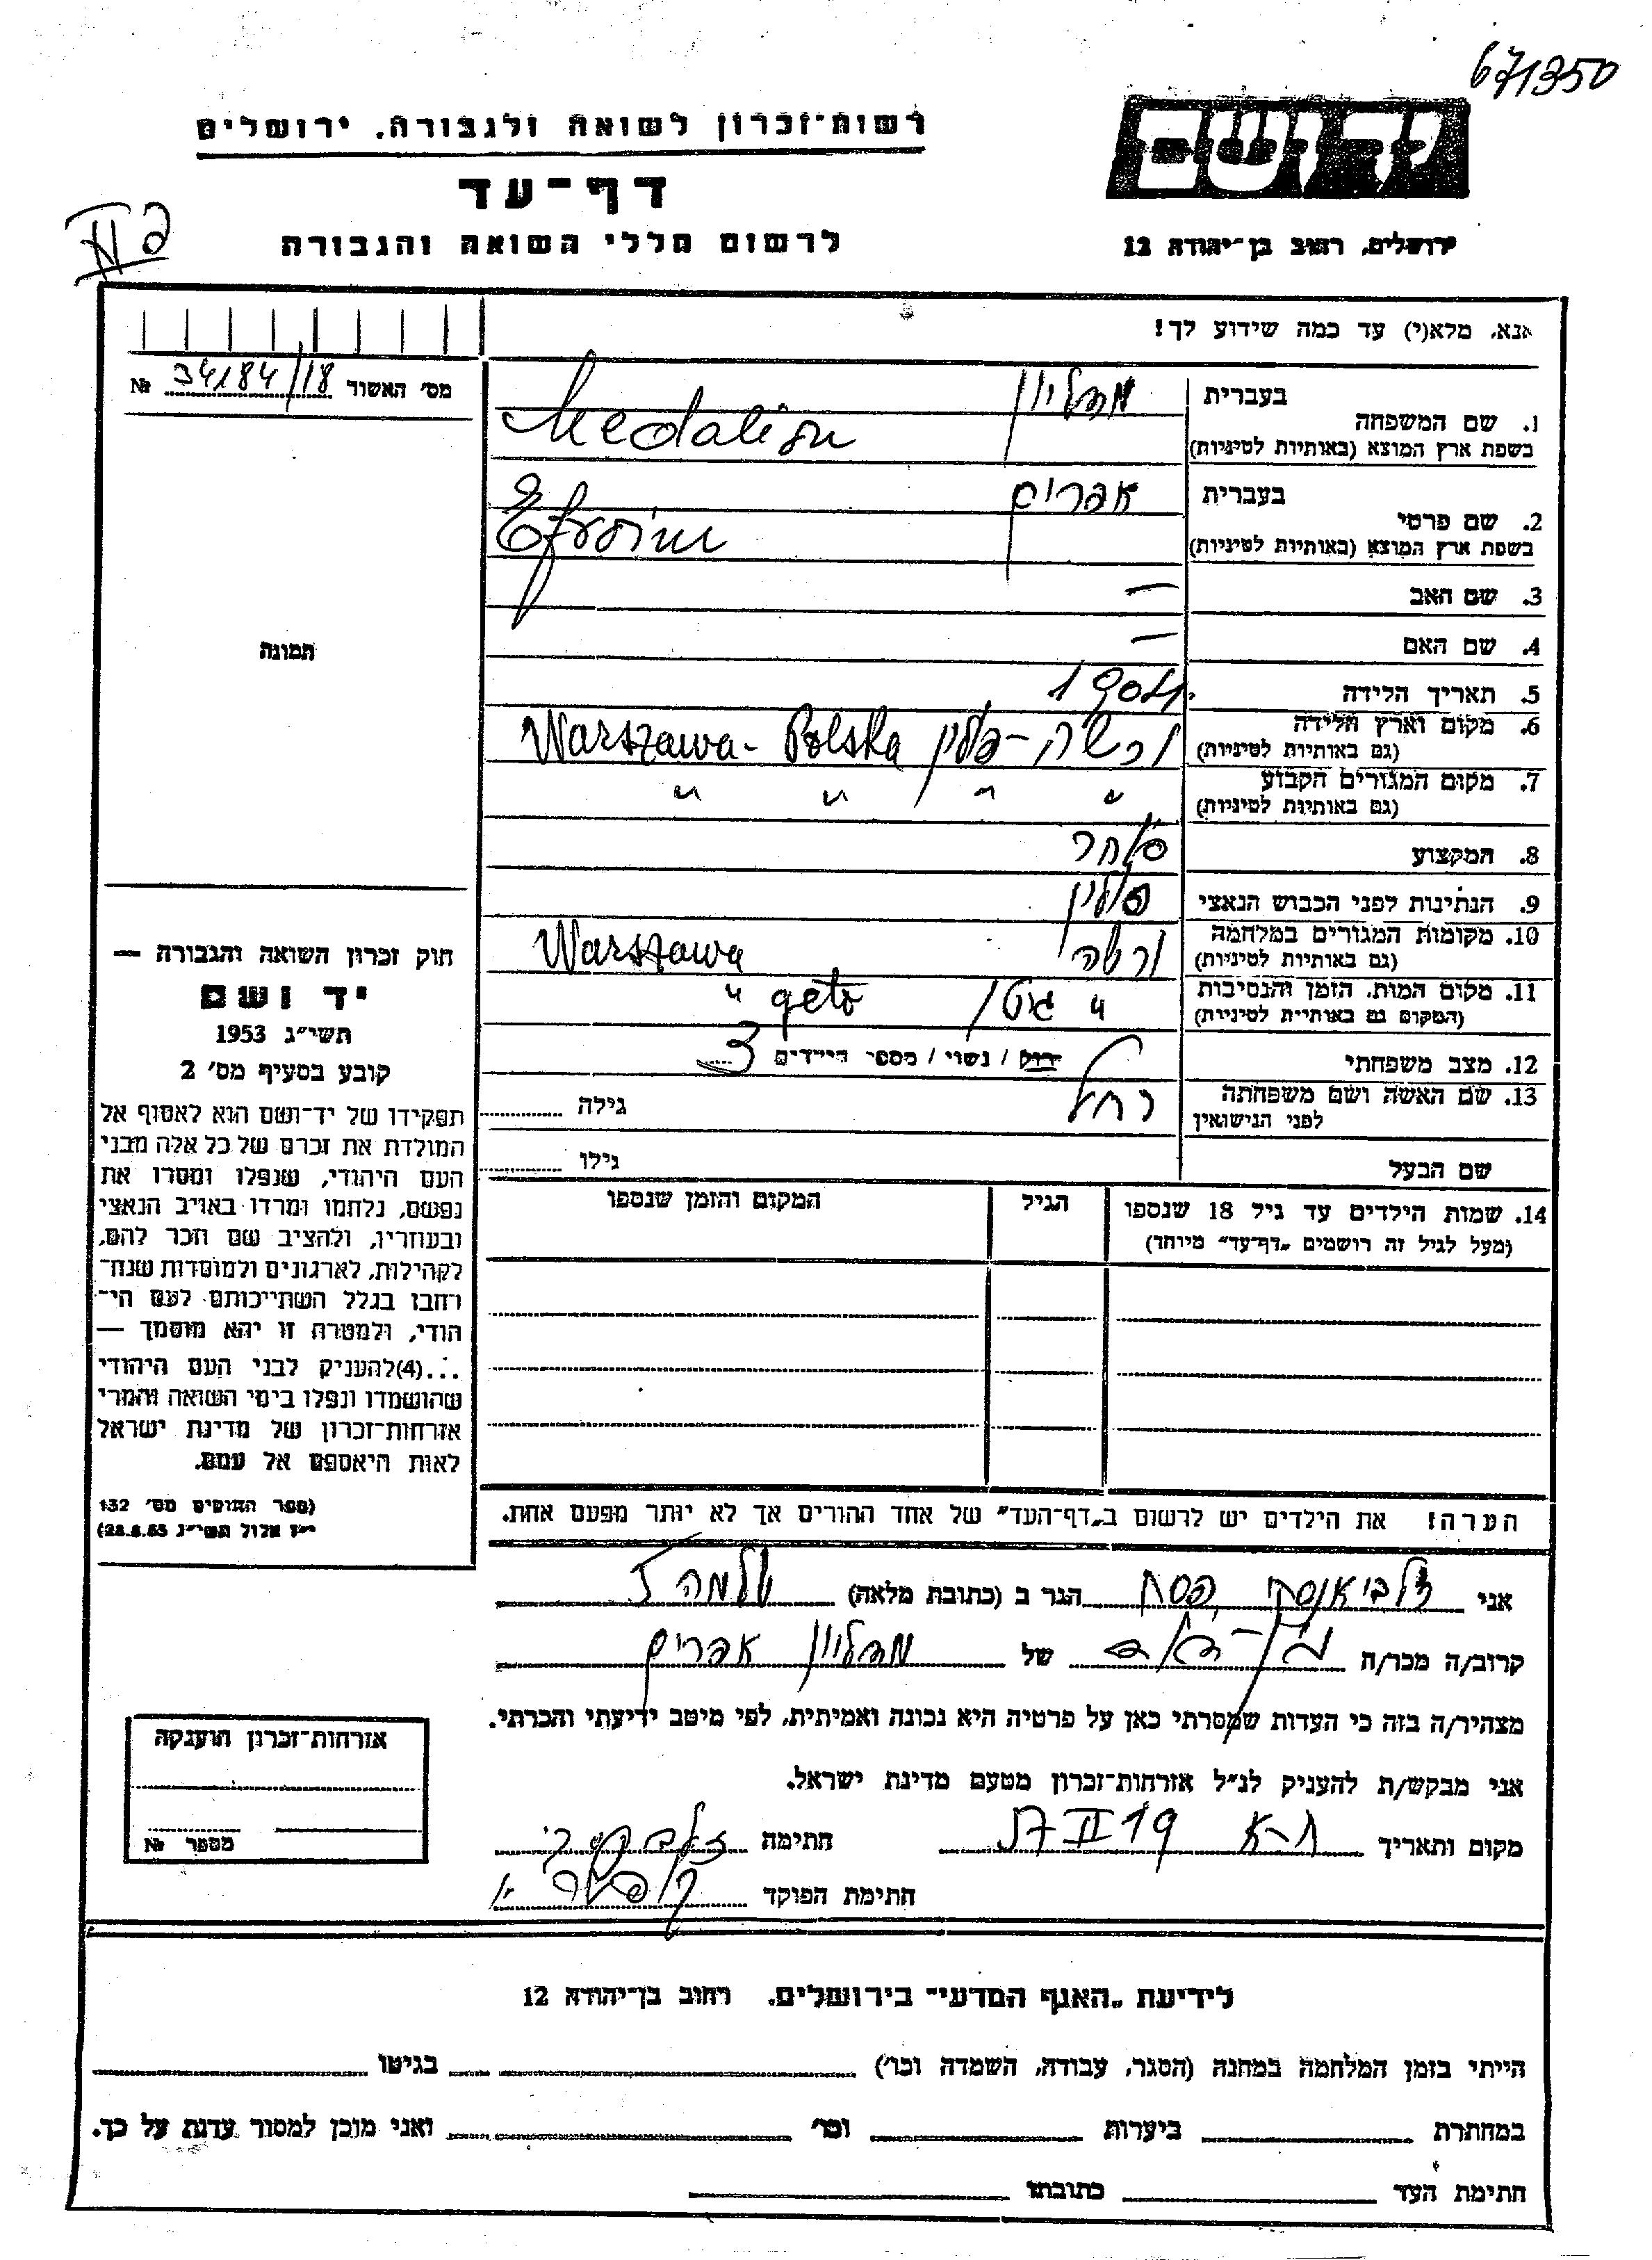 671350
רשות־זכרון לשואה ולגבורה. ירושלים
יד ושם
דף־עד
לרשום חללי השואה והגבורה
ירושלים, רחוב בן־יהודה 12
אנא, מלא(י) עד כמה שידוע לך!
מס׳ האשור 34184/18 №
בעברית מדליון
1. שם המשפחה
בשפת ארץ המוצא (באותיות לטיניות) Medalion
בעברית אפרים
2. שם פרטי
בשפת ארץ המוצא (באותיות לטיניות) Efroim
3. שם האב —
4. שם האם —
תמונה
5. תאריך הלידה
6. מקום וארץ הלידה ורשה - פולין Warszawa - Polska
(גם באותיות לטיניות)
7. מקום המגורים הקבוע " " " "
(גם באותיות לטיניות)
8. המקצוע סוחר
9. הנתינות לפני הכבוש הנאצי פולין
10. מקומות המגורים במלחמה ורשה Warszawa
(גם באותיות לטיניות)
11. מקום המות, הזמן והנסיבות " גטו " geto
(המקום גם באותיות לטיניות)
12. מצב משפחתי רווק / נשוי / מספר הילדים 3
13. שם האשה ושם משפחתה רחל גילה
לפני הנישואין
שם הבעל גילו
14. שמות הילדים עד גיל 18 שנספו הגיל המקום והזמן שנספו
(מעל לגיל זה רושמים „דף־עד" מיוחד)
הערה! את הילדים יש לרשום ב„דף־העד" של אחד ההורים אך לא יותר מפעם אחת.
חוק זכרון השואה והגבורה —
יד ושם
תשי״ג 1953
קובע בסעיף מס׳ 2
תפקידו של יד־ושם הוא לאסוף אל
המולדת את זכרם של כל אלה מבני
העם היהודי, שנפלו ומסרו את
נפשם, נלחמו ומרדו באויב הנאצי
ובעוזריו, ולהציב שם וזכר להם,
לקהילות, לארגונים ולמוסדות שנח־
רבו בגלל השתייכותם לעם הי־
הודי, ולמטרה זו יהא מוסמך —
...(4)להעניק לבני העם היהודי
שהושמדו ונפלו בימי השואה והמרי
אזרחות־זכרון של מדינת ישראל
לאות היאספם אל עמם.
(ספר החוקים מס׳ 132
י״ז אלול תשי״ג 28.8.53)
אני פסח הגר ב (כתובת מלאה) שלמה
קרוב/ה מכר/ה בן-דוד של מדליון אפרים
מצהיר/ה בזה כי העדות שמסרתי כאן על פרטיה היא נכונה ואמיתית, לפי מיטב ידיעתי והכרתי.
אני מבקש/ת להעניק לנ״ל אזרחות־זכרון מטעם מדינת ישראל.
מקום ותאריך ת-א חתימה
חתימת הפוקד
אזרחות־זכרון הוענקה
מספר №
לידיעת „האגף המדעי" בירושלים. רחוב בן־יהודה 12
הייתי בזמן המלחמה במחנה (הסגר, עבודה, השמדה וכו׳) בגיטו
במחתרת ביערות וכו׳ ואני מוכן למסור עדות על כך.
חתימת העד כתובתו